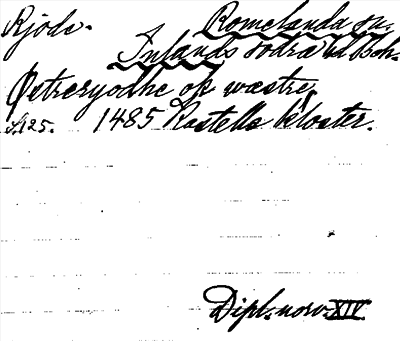 Rjöde. Romelanda sn.
Inlands södra hd Boh.
Østreryodhe ok wæstre,
S.125. 1485 Kastella kloster.
Dipl. norv. XIV.